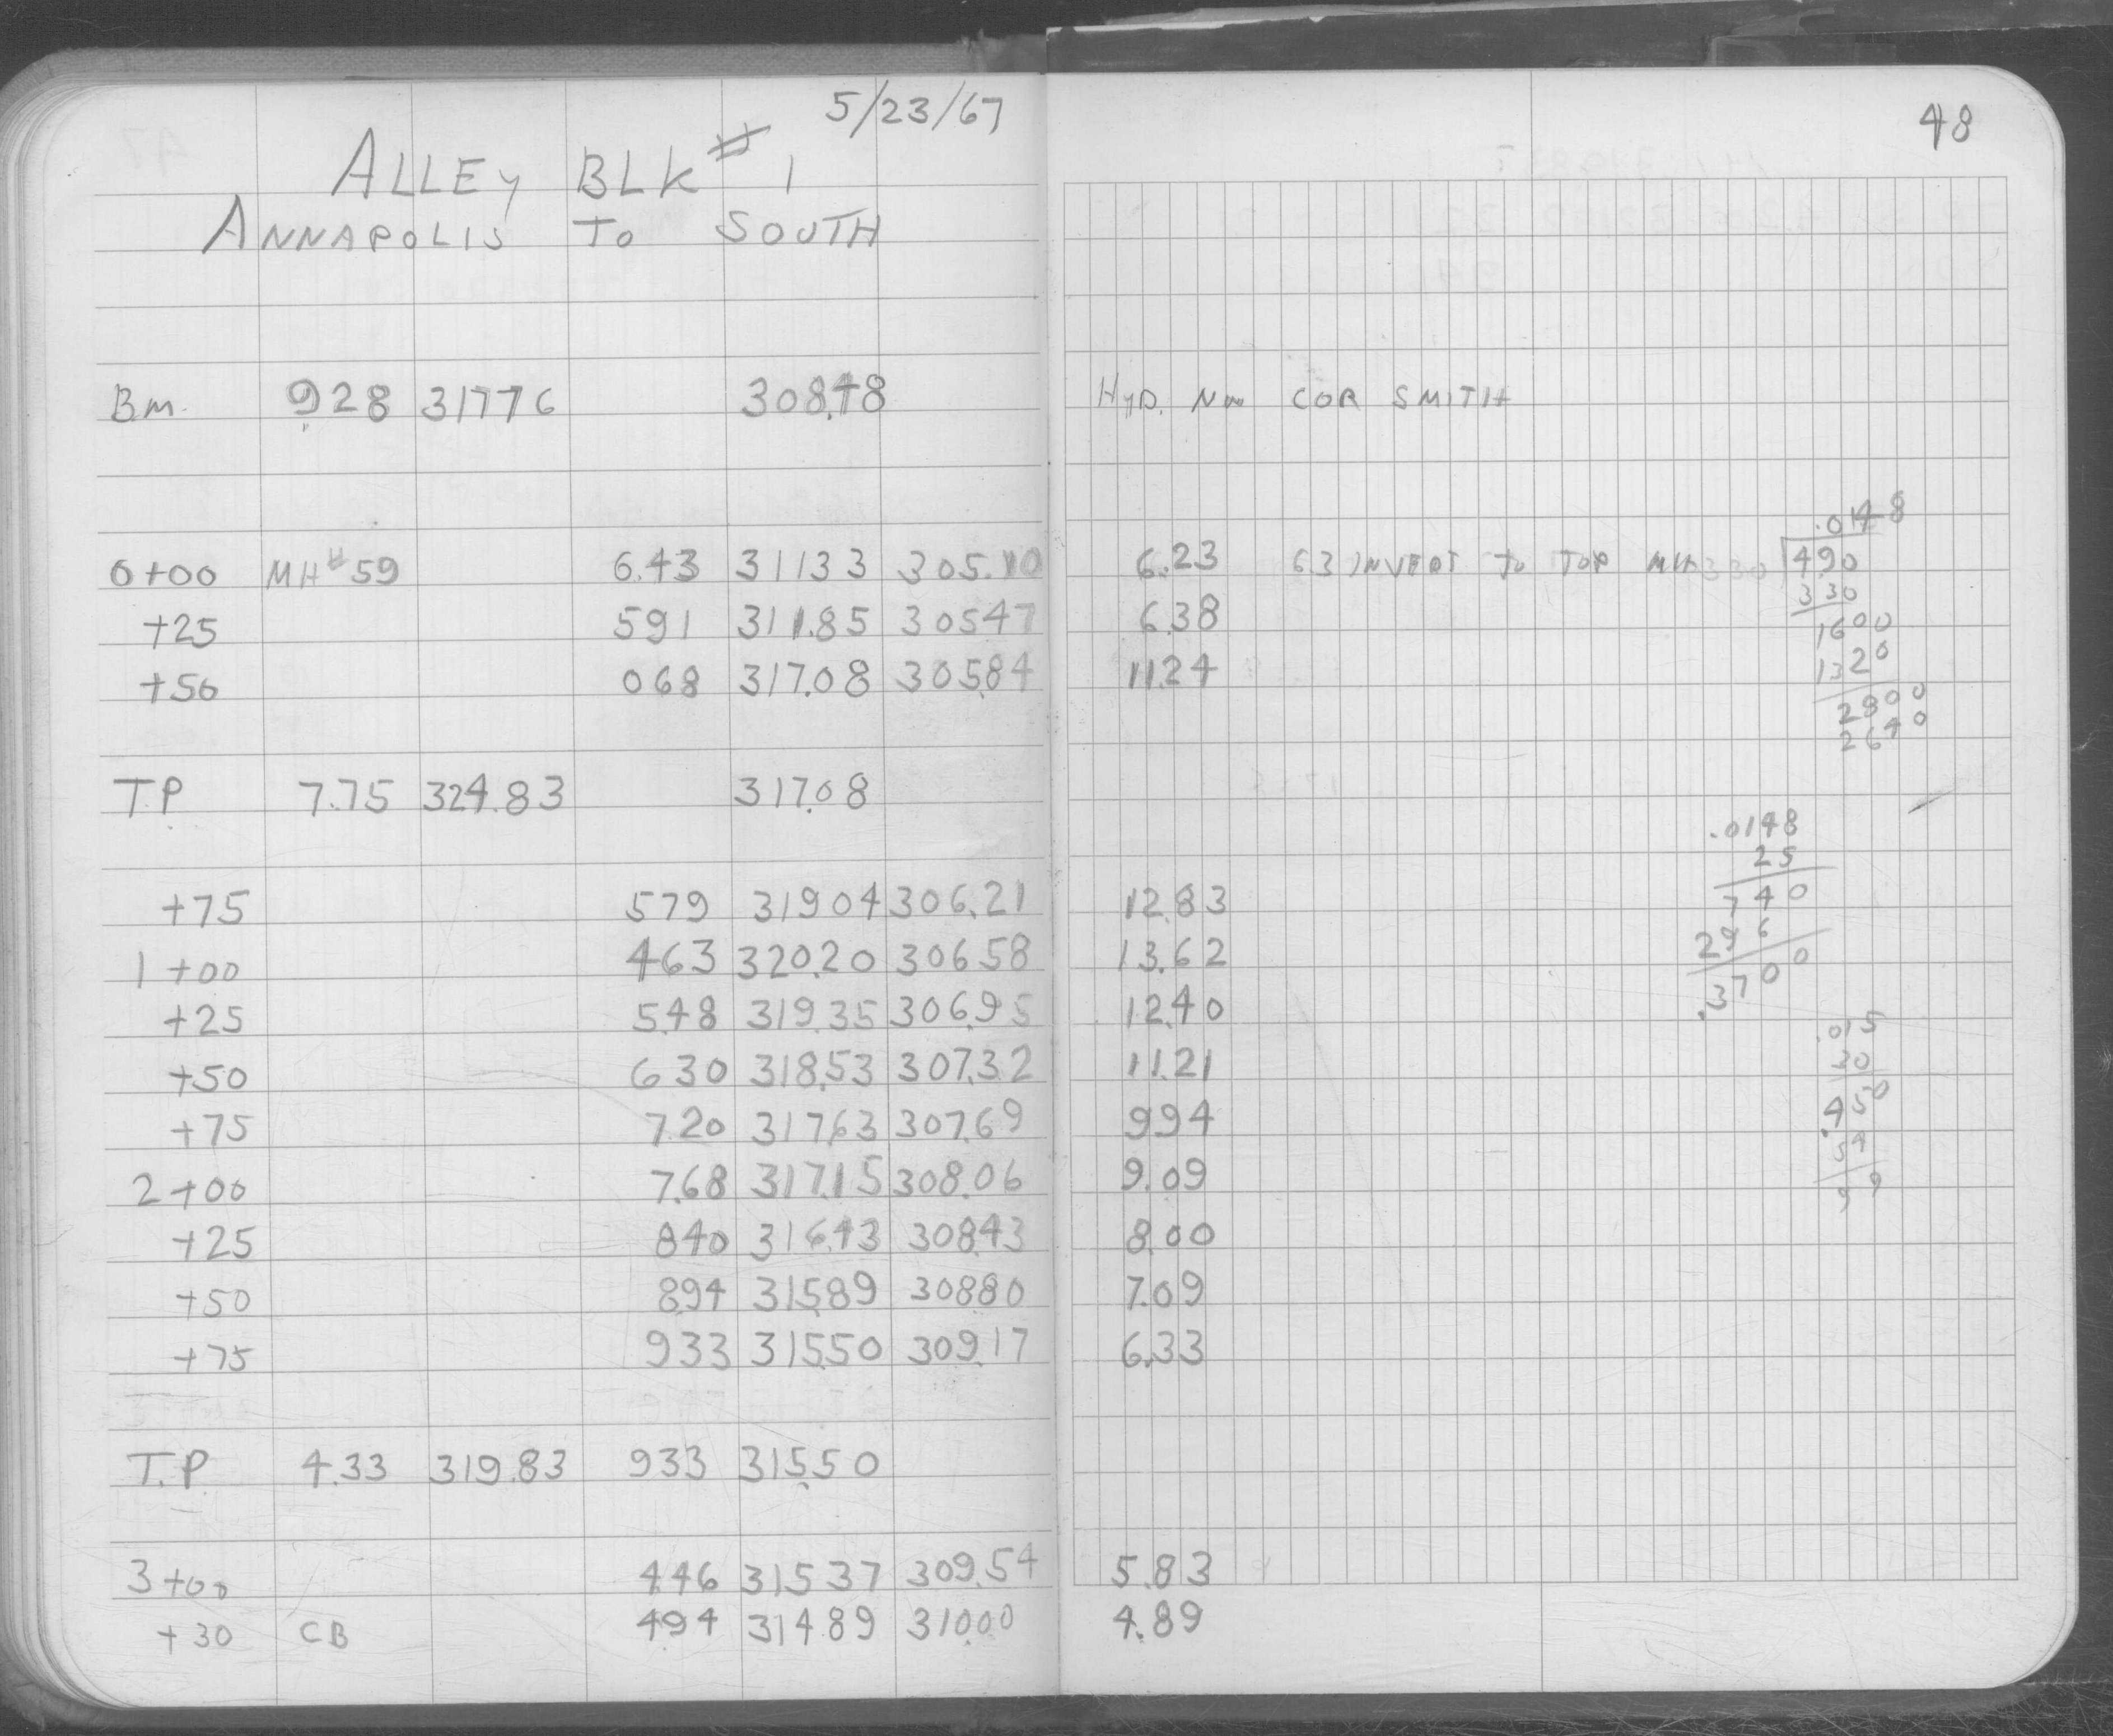 5/23/67
48
ALLEY BLK # 1
ANNAPOLIS TO SOUTH
BM. 9.28 31776 308.48 HYD. COR SMITH
0+00 MH #59 6.43 31133 305.10 6.23 63 INVERT TO TOP MH
+25 591 311.85 30547 6.38
+50 068 317.08 305.84 11.24
T.P 7.75 324.83 317.08
+75 579 31904 306.21 12.83
1+00 463 320.20 306.58 13.62
+25 5.48 319.35 306.95 12.40
+50 630 318.53 307.32 11.21
+75 7.20 317.63 307.69 994
2+00 7.68 317.15 308.06 9.09
+25 840 316.43 308.43 8.00
+50 8.94 315.89 30880 7.09
+75 933 315.50 309.17 6.33
T.P 4.33 319.83 933 315.50
3+00 4.46 31537 309.54 5.83
+30 CB 494 314.89 310.00 4.89
.0148
330 490
330
1600
1320
2800
2640
.0148
25
740
296
.3700
.015
30
.450
54
99